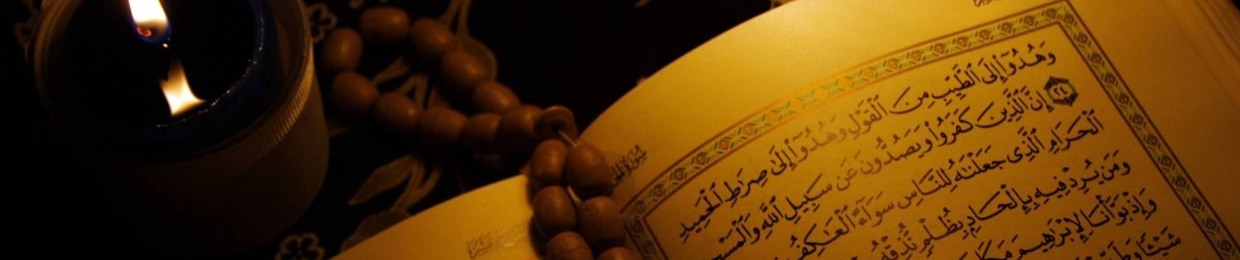 وَهُدُوٓا۟ إِلَى ٱلطَّيِّبِ مِنَ ٱلْقَوْلِ وَهُدُوٓا۟ إِلَىٰ صِرَٰطِ ٱلْحَمِيدِ
٢٤ إِنَّ ٱلَّذِينَ كَفَرُوا۟ وَيَصُدُّونَ عَن سَبِيلِ ٱللَّهِ وَٱلْمَسْجِ
ٱلْحَرَامِ ٱلَّذِى جَعَلْنَٰهُ لِلنَّاسِ سَوَآءً ٱلْعَٰكِفُ
وَمَن يُرِدْ فِيهِ بِإِلْحَادٍۭ بِظُلْمٍ نُّذِقْهُ
وَإِذْ بَوَّأْنَا لِإِبْرَٰهِيمَ مَكَا
شَيْـًٔا وَطَهِّ